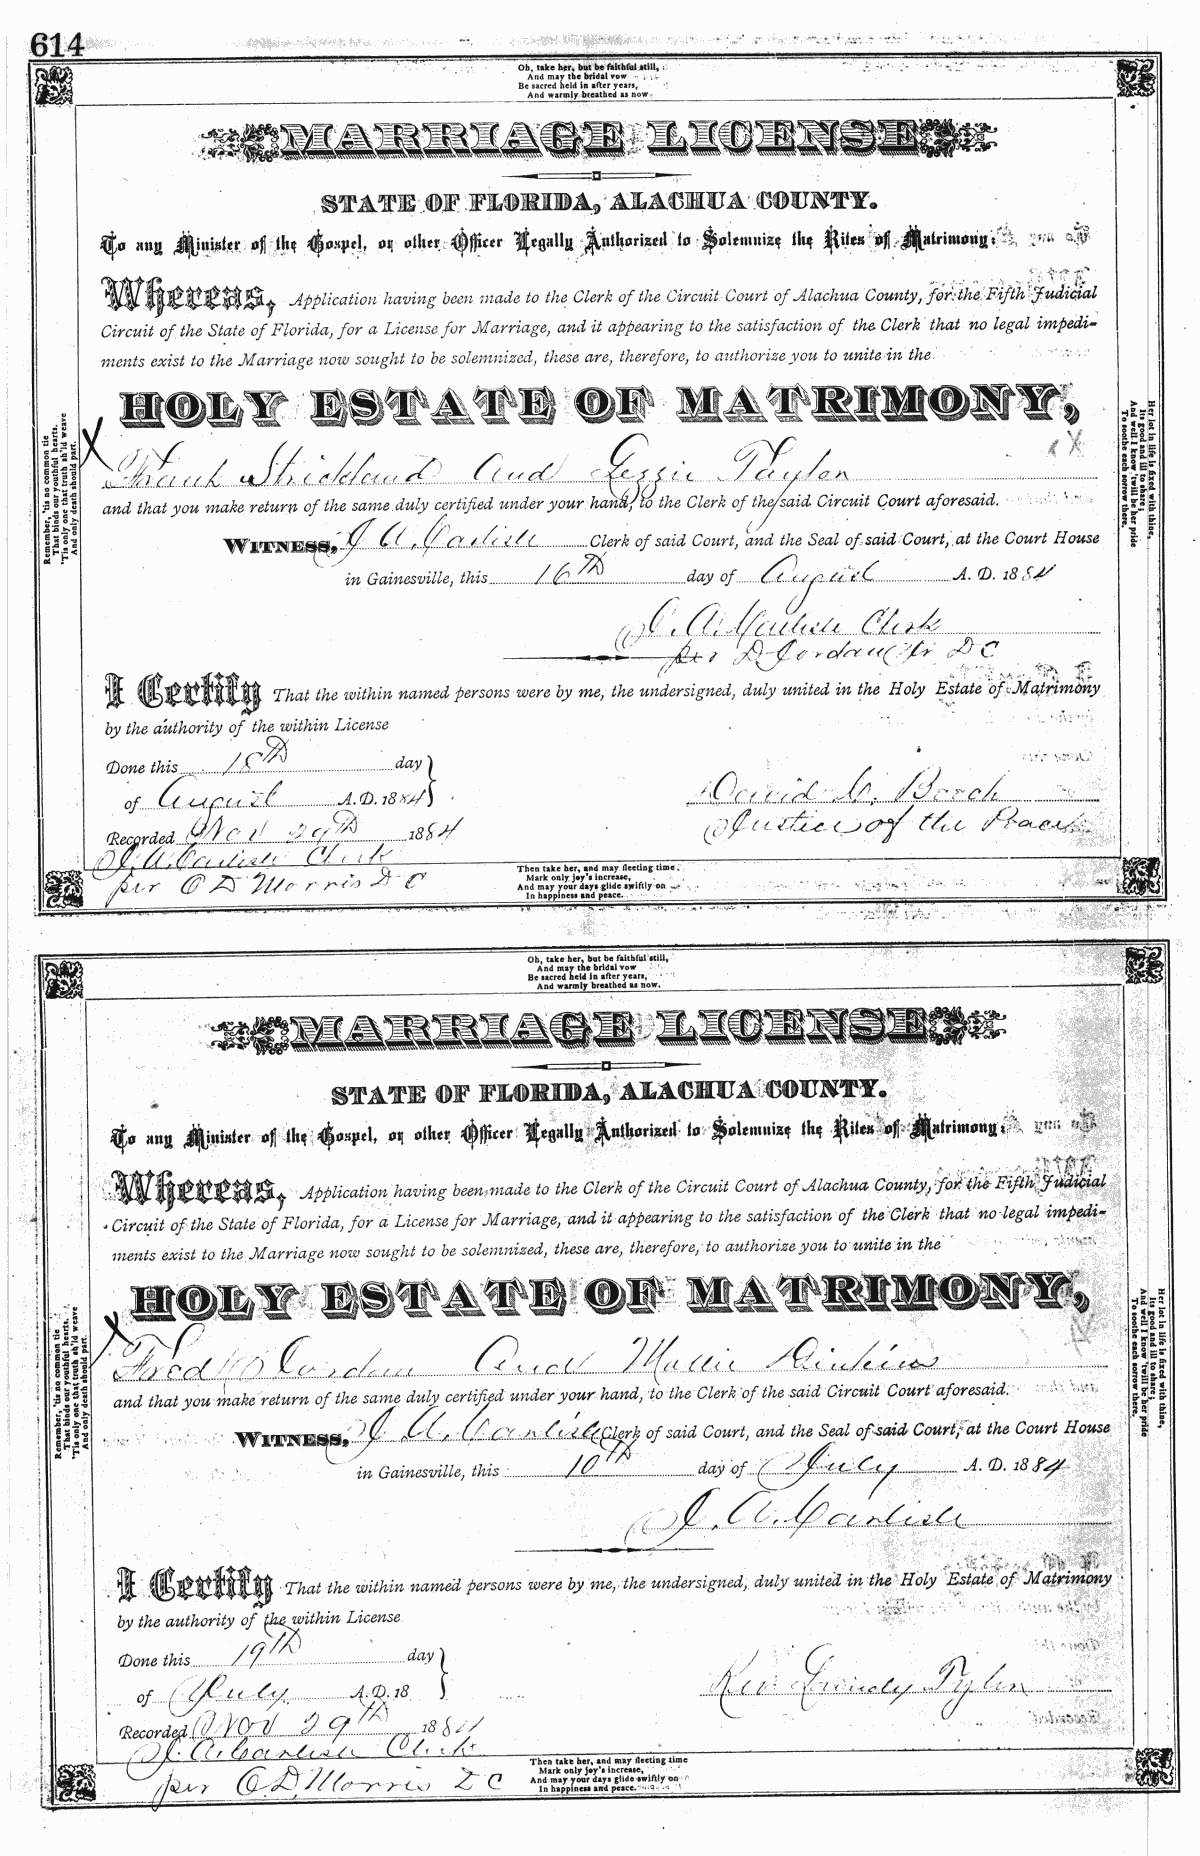 614
Oh, take her, but be faithful still,
And may the bridal vow
Be sacred held in after years,
And warmly breathed as now
MARRIAGE LICENSE
STATE OF FLORIDA, ALACHUA COUNTY.
To any Minister of the Gospel, or other Officer Legally Authorized to Solemnize the Rites of Matrimony:
Whereas, Application having been made to the Clerk of the Circuit Court of Alachua County, for the Fifth Judicial
Circuit of the State of Florida, for a License for Marriage, and it appearing to the satisfaction of the Clerk that no legal impedi-
ments exist to the Marriage now sought to be solemnized, these are, therefore, to authorize you to unite in the
HOLY ESTATE OF MATRIMONY,
X
Frank Strickland and Lizzie Taylor
and that you make return of the same duly certified under your hand, to the Clerk of the said Circuit Court aforesaid.
WITNESS, J A Carlisle Clerk of said Court, and the Seal of said Court, at the Court House
in Gainesville, this 16th day of August A. D. 1884
J. A. Carlisle Clerk
per D Jordan Jr D C
I Certify That the within named persons were by me, the undersigned, duly united in the Holy Estate of Matrimony
by the authority of the within License
Done this 18th day
of August A. D. 1884
David
Justice of the Peace
Recorded Nov 29th 1884
J. A. Carlisle Clerk
per O D Morris D C
Remember, 'tis no common tie
That binds our youthful hearts,
'Tis only one that truth sh'ld weave
And only death should part.
Her lot in life is fixed with thine,
Its good and ill to share;
And well I know 'twill be her pride
To soothe each sorrow there.
Then take her, and may fleeting time
Mark only joy's increase,
And may your days glide swiftly on
In happiness and peace.
Oh, take her, but be faithful still,
And may the bridal vow
Be sacred held in after years,
And warmly breathed as now.
MARRIAGE LICENSE
STATE OF FLORIDA, ALACHUA COUNTY.
To any Minister of the Gospel, or other Officer Legally Authorized to Solemnize the Rites of Matrimony:
Whereas, Application having been made to the Clerk of the Circuit Court of Alachua County, for the Fifth Judicial
Circuit of the State of Florida, for a License for Marriage, and it appearing to the satisfaction of the Clerk that no legal impedi-
ments exist to the Marriage now sought to be solemnized, these are, therefore, to authorize you to unite in the
HOLY ESTATE OF MATRIMONY,
X
Fred Jordan And Mollie Dinkins
and that you make return of the same duly certified under your hand, to the Clerk of the said Circuit Court aforesaid.
WITNESS, J A. Carlisle Clerk of said Court, and the Seal of said Court, at the Court House
in Gainesville, this 10th day of July A. D. 1884
J. A. Carlisle
I Certify That the within named persons were by me, the undersigned, duly united in the Holy Estate of Matrimony
by the authority of the within License
Done this 19th day
of July A. D. 18
Rev Tyler
Recorded Nov 29th 1884
J. A. Carlisle Clerk
per O. D. Morris D C
Remember, 'tis no common tie
That binds our youthful hearts,
'Tis only one that truth sh'ld weave
And only death should part.
Her lot in life is fixed with thine,
Its good and ill to share;
And well I know 'twill be her pride
To soothe each sorrow there.
Then take her, and may fleeting time
Mark only joy's increase,
And may your days glide swiftly on
In happiness and peace.